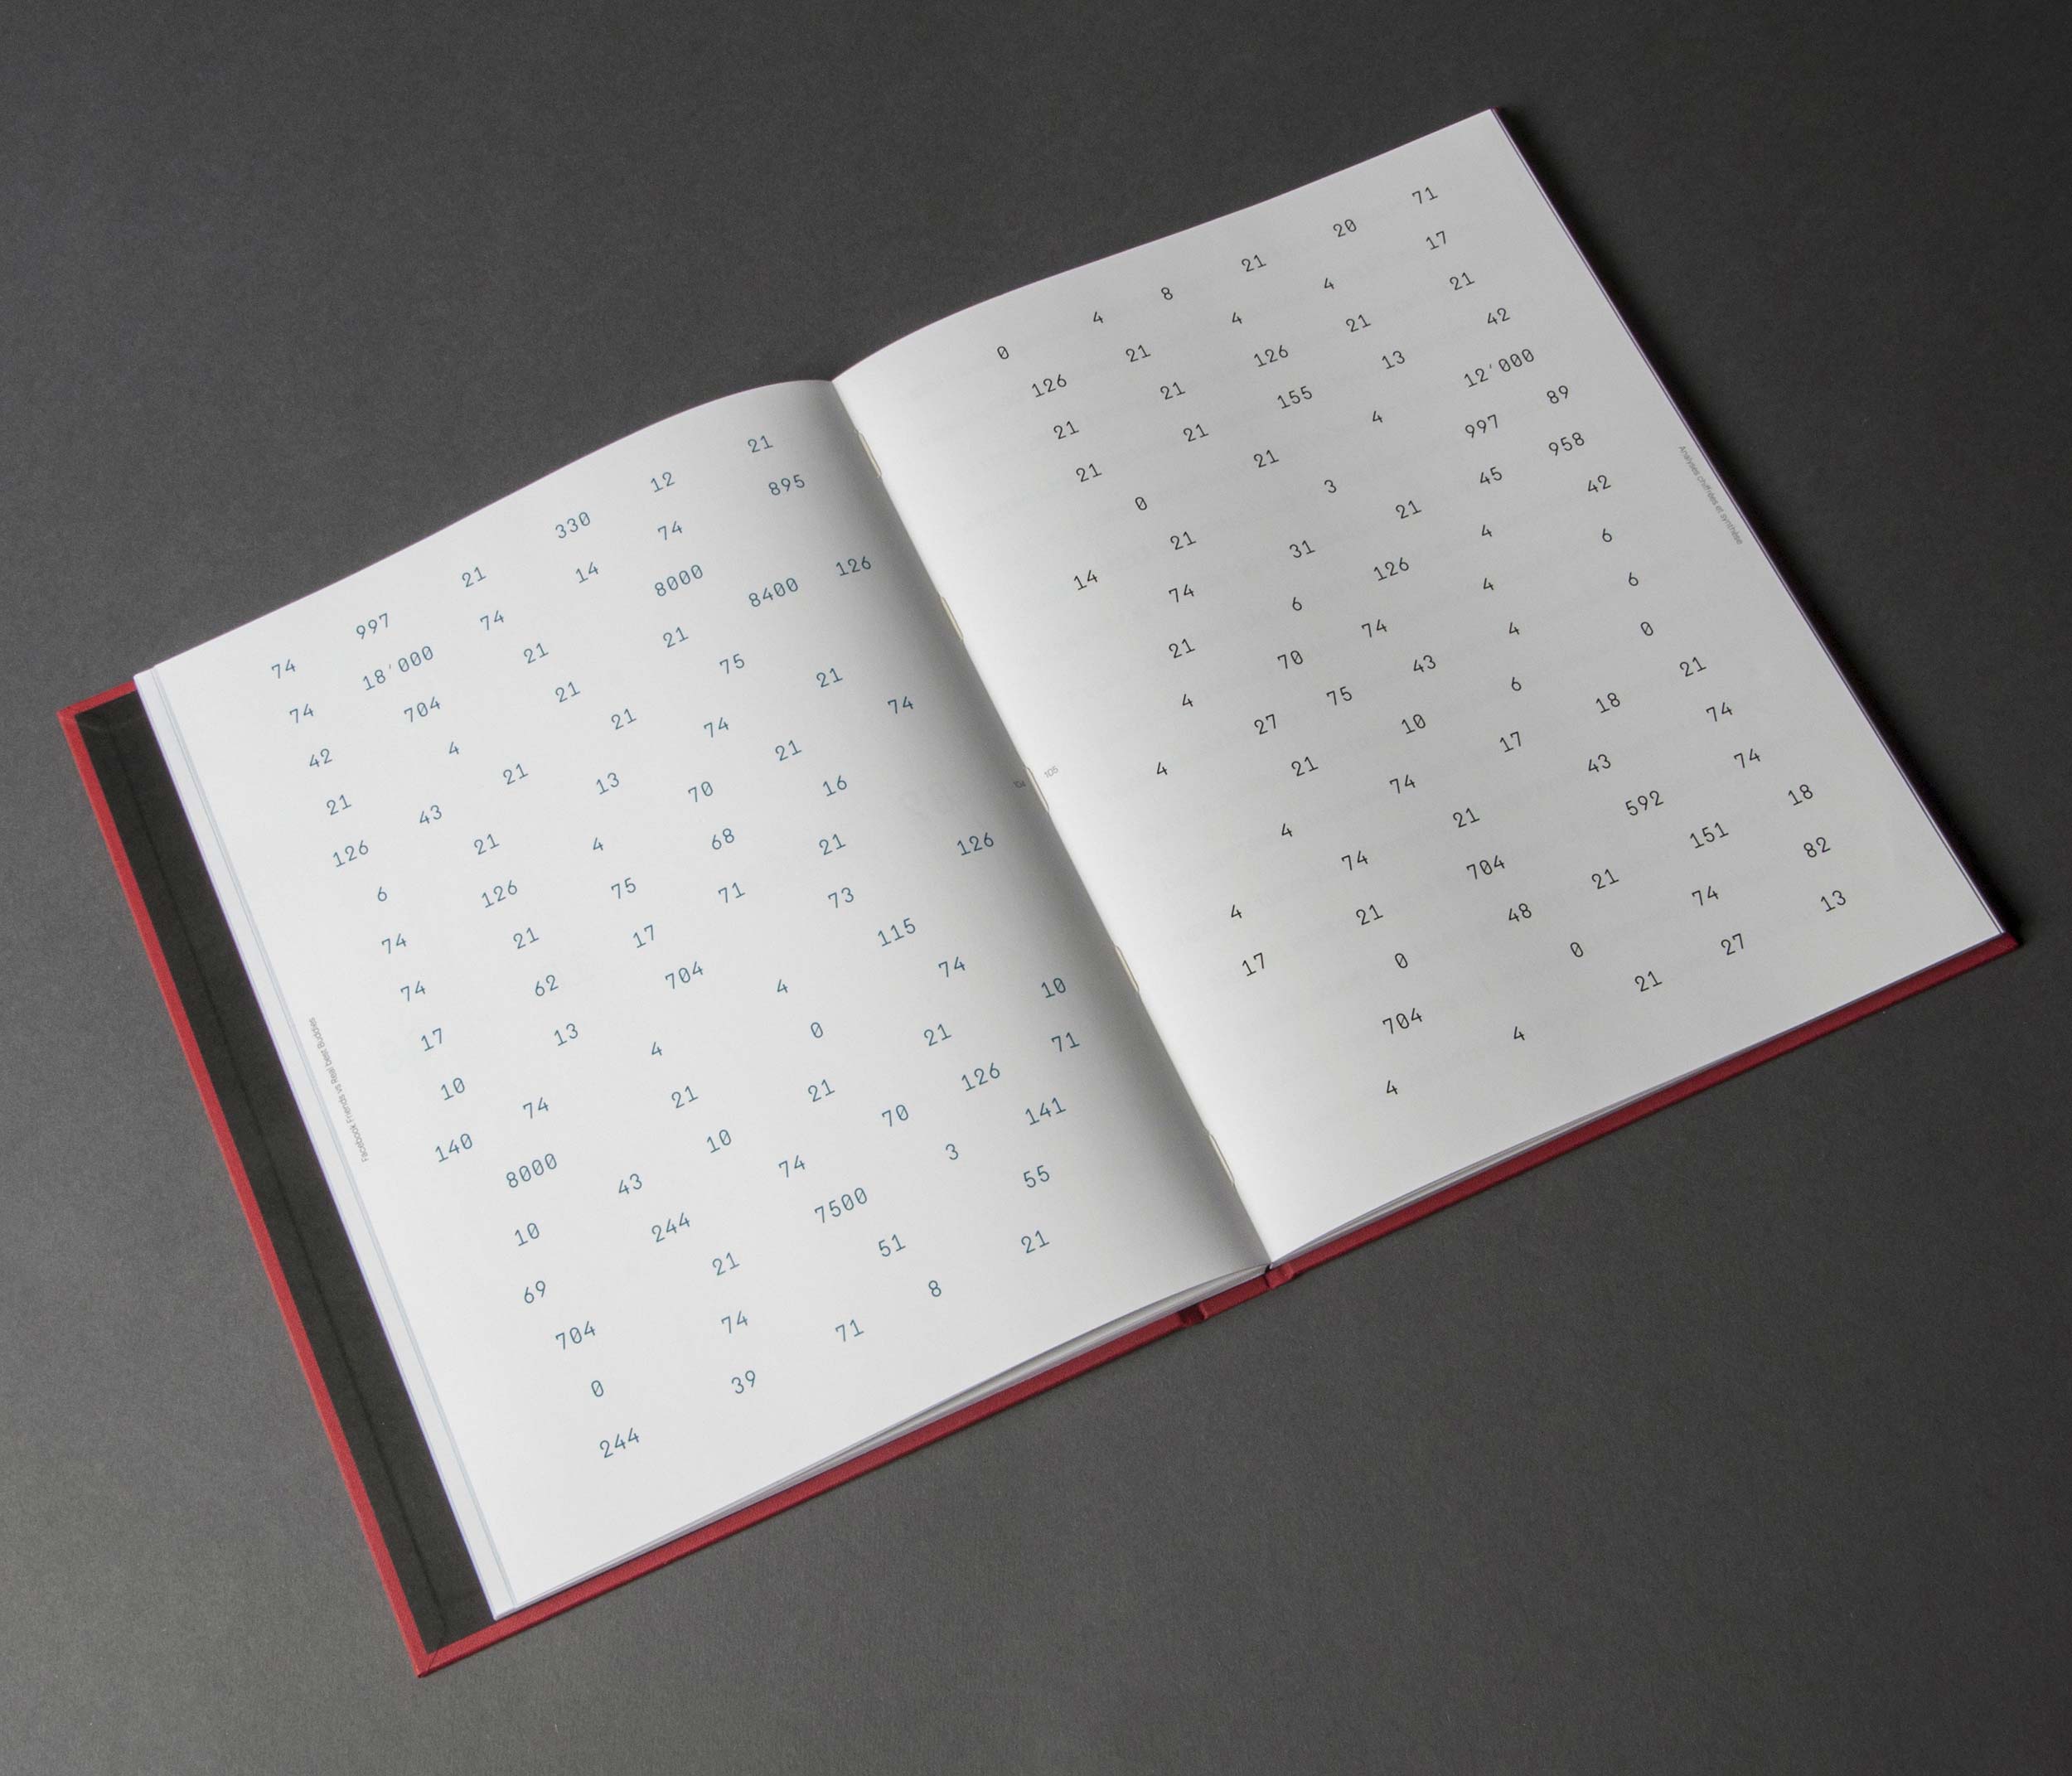 74 997 21 330 12 21
74 18'000 74 14 74 895
42 704 21 8000
21 4 21 21 8400 126
126 43 21 21 75
6 21 13 74 21
74 126 4 70 21 74
74 21 75 68 16
17 62 17 71 21
10 13 704 73 126
140 74 4 4 115
8000 21 0 74
10 43 10 21 21 10
69 244 74 70 126 71
704 21 7500 3 141
0 74 51 55
244 39 71 8 21
Facebook Friends vs Real best Buddies
0 4 8 21 20 71
126 21 4 4 17
21 21 126 21 21
21 21 155 13 42
0 21 4 12'000
14 21 3 997 89
74 31 21 45 958
21 6 126 4 42
4 70 74 4 6
4 27 75 43 4 6
21 10 6 0
4 74 17 18 21
4 74 21 43 74
17 21 704 592 74
0 48 21 151 18
704 0 74 82
4 4 21 27 13
105
Analyses chiffrées et synthèse